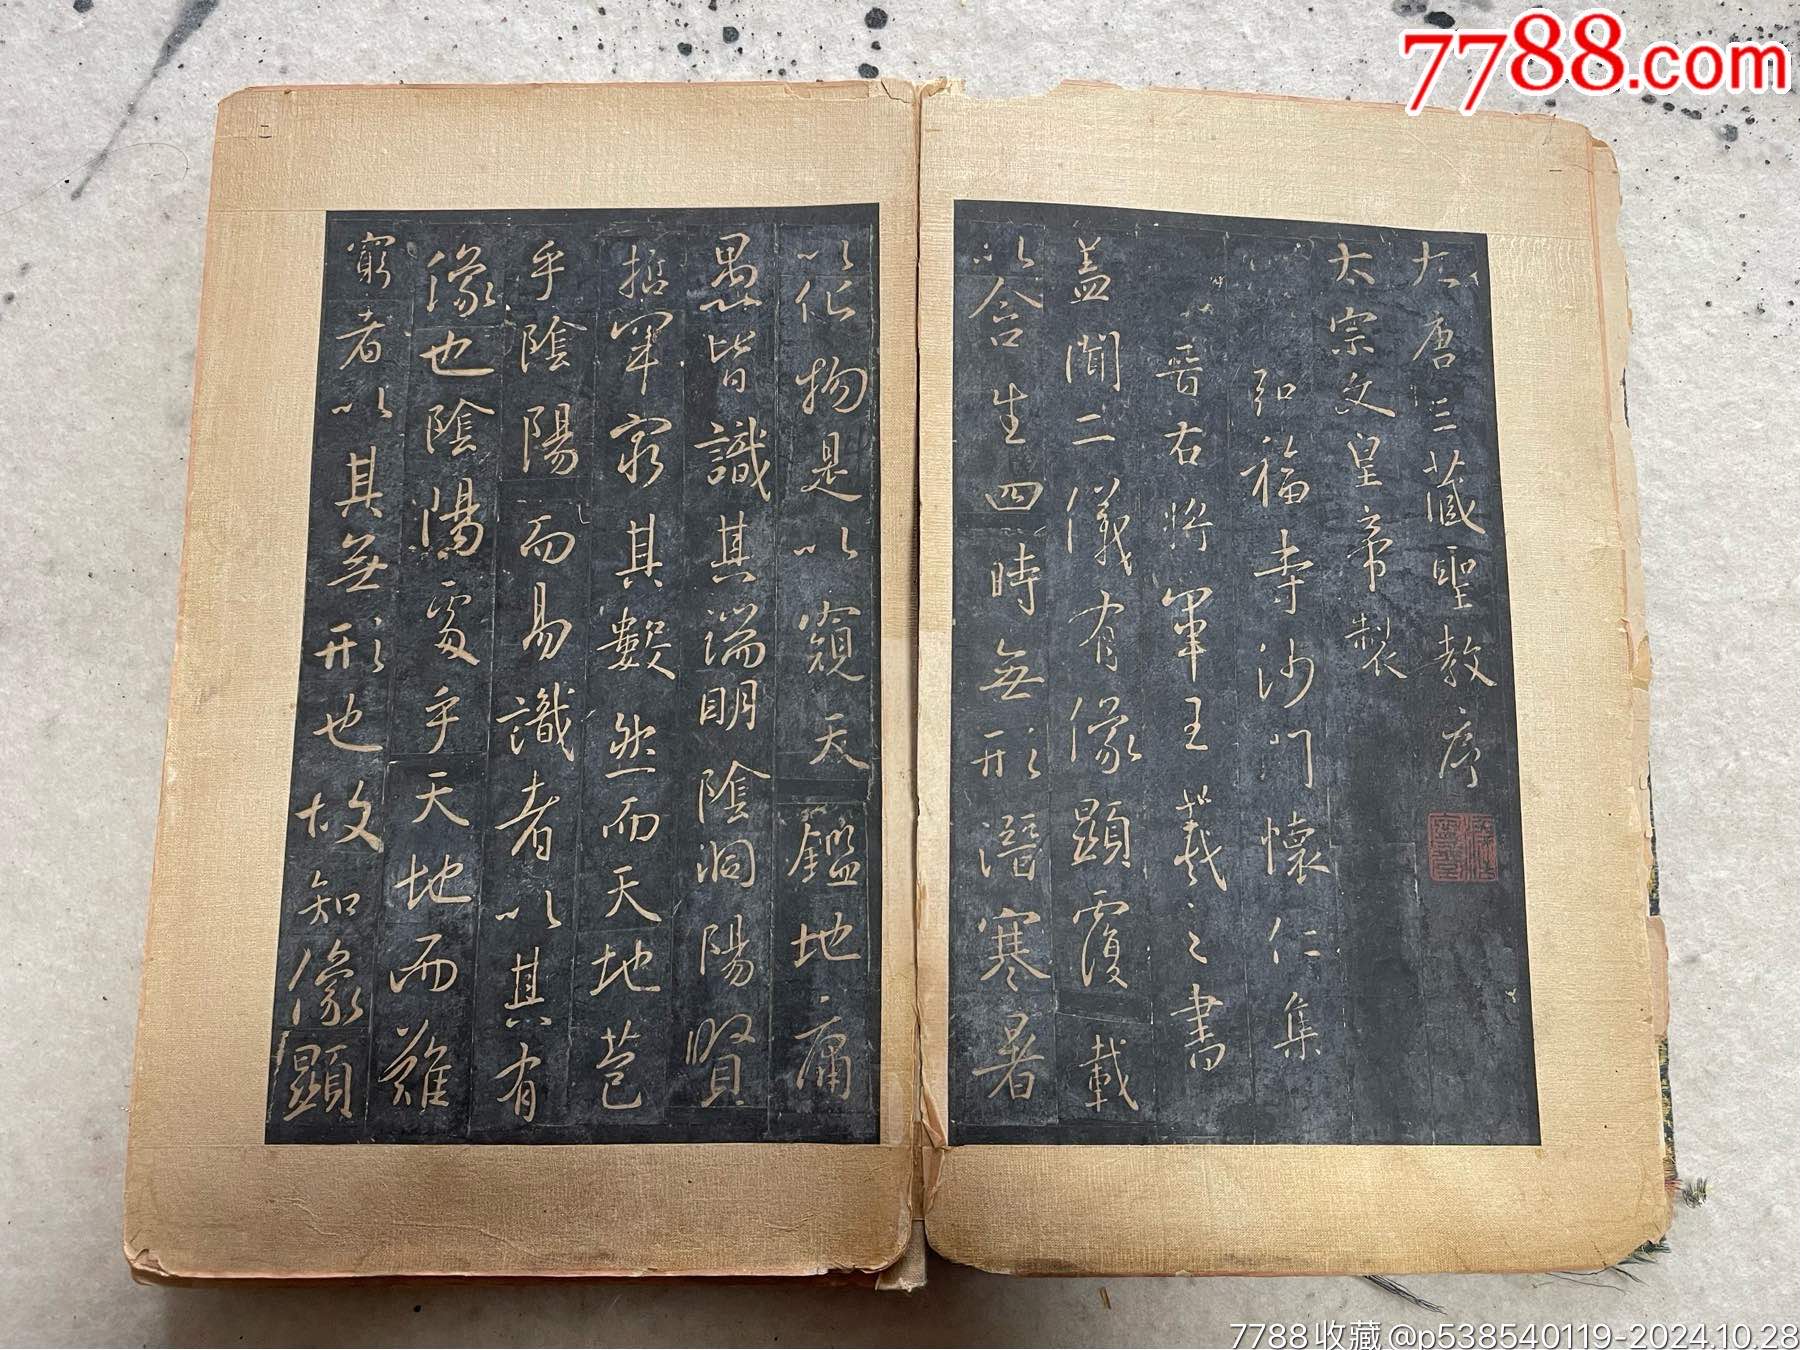 7788.com
大唐三藏聖教序
太宗文皇帝製
弘福寺沙門懷仁集
晉右將軍王羲之書
蓋聞二儀有像顯覆載
以含生四時無形潛寒暑
以化物是以窺天鑑地庸
愚皆識其端明陰洞陽賢
哲罕窮其數然而天地苞
乎陰陽而易識者以其有
像也陰陽處乎天地而難
窮者以其無形也故知像顯
7788收藏@p538540119-2024.10.28